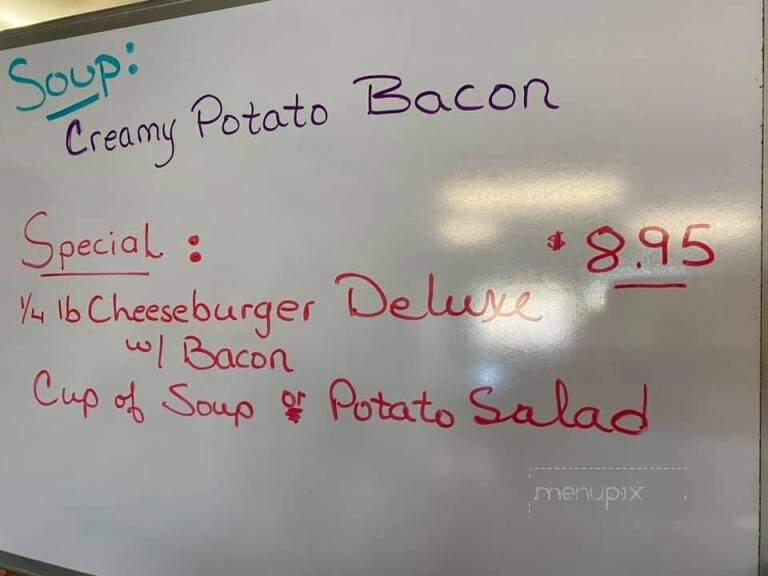 Soup:
Creamy Potato Bacon
Special:
$8.95
1/4 lb Cheeseburger Deluxe
w/ Bacon
Cup of Soup or Potato Salad
menupix